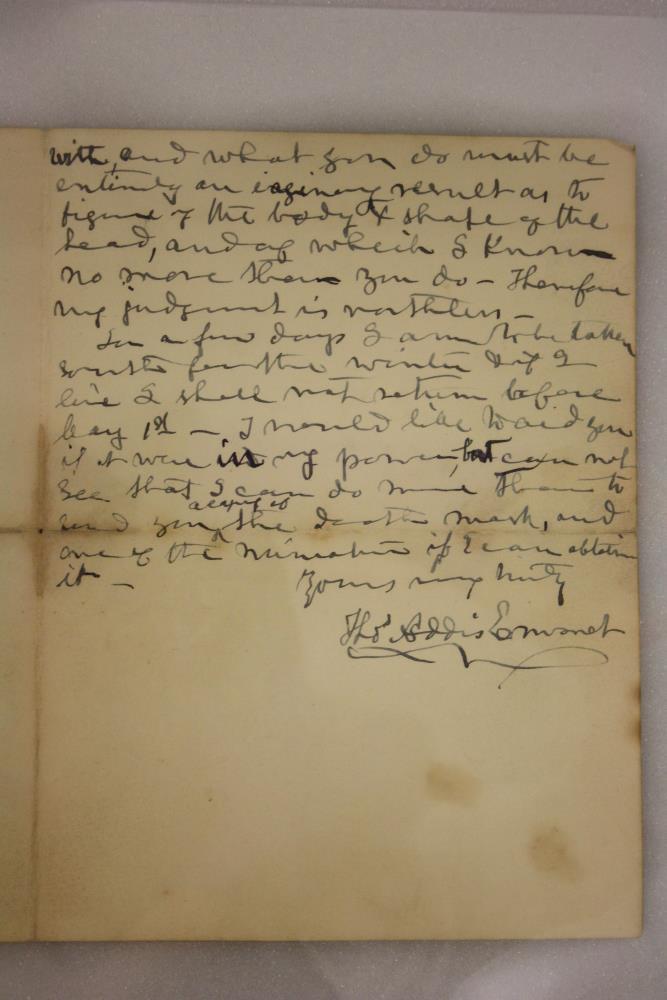 with, and what you do must be
entirely an iaginary result as to
figure of the body & shape of the
head, and of which I know
no more than you do – Therefore
my judgment is worthless –
In a few days I am to be taken
south for the winter & if I
live I shall not return before
May 1st – I would like to aid you
if it were in my power, but can not
see that I can do more than to
send you a copy of the death mask, and
one of the miniature if I can obtain
it –
Yours very truly
Thos Addis Emmet